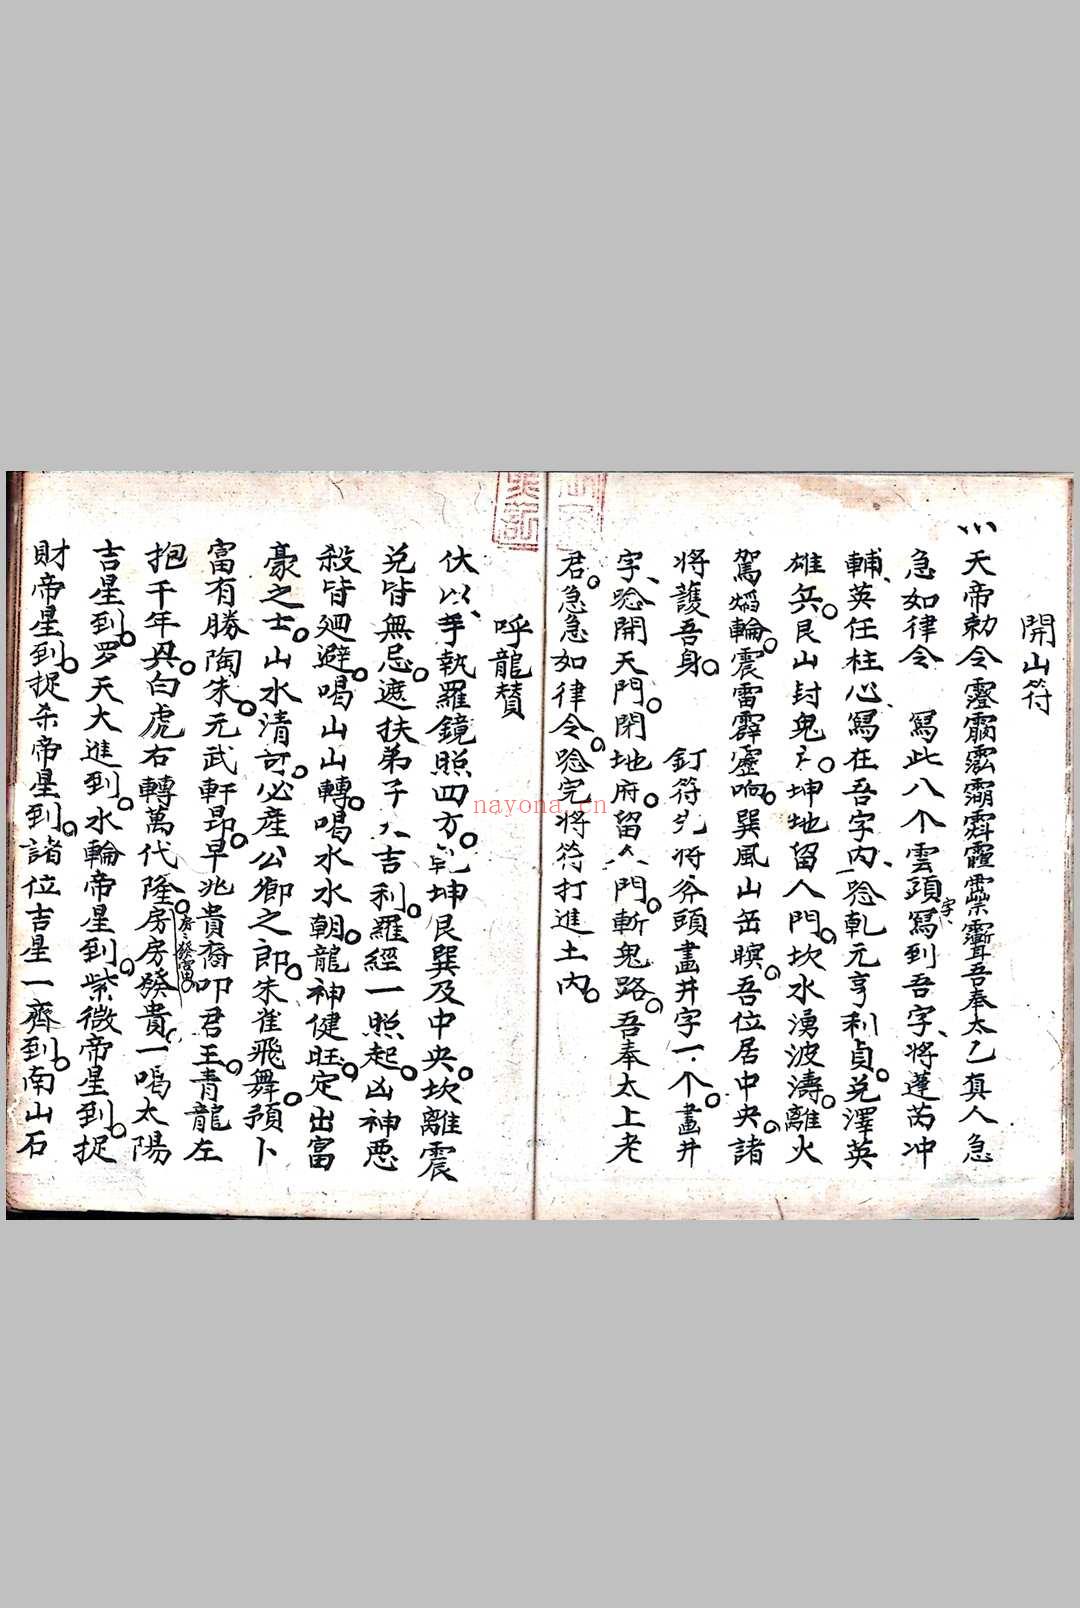 開山符
天帝勅令吾奉太乙真人急
急如律令　寫此八个雲頭字寫到吾字、將蓬芮冲
輔、英任柱心、寫在吾字內、唸乹元亨利貞。兑澤英
雄兵。艮山封鬼。坤地留人門。坎水湧波濤。離火
駕焰輪。震雷霹靂响。巽風山岳瞑。吾位居中央。諸
將護吾身。　釘符將斧頭畫井字一个。畫井
字、唸開天門。閉地府。留人門。斬鬼路。吾奉太上老
君。急急如律令。唸完將符打進土內。
呼龍賛
伏以、手執羅鏡照四方。乹坤艮巽及中央。坎離震
兑皆無忌。遮扶弟子大吉利。羅經一照起。凶神悪
殺皆廻避。喝山山轉。喝水水朝。龍神健旺。定出富
豪之士。山水清奇。必產公卿之郎。朱雀飛舞。預卜
富有勝陶朱。元武軒昂。早兆貴裔叩君王。青龍左
抱千年丹。白虎右轉萬代隆。房房發貴。一喝太陽
房房發富貴
吉星到。罗天大進到。水輪帝星到。紫微帝星到。捉
財帝星到。捉杀帝星到。諸位吉星一齊到。南山石
nayona.cn